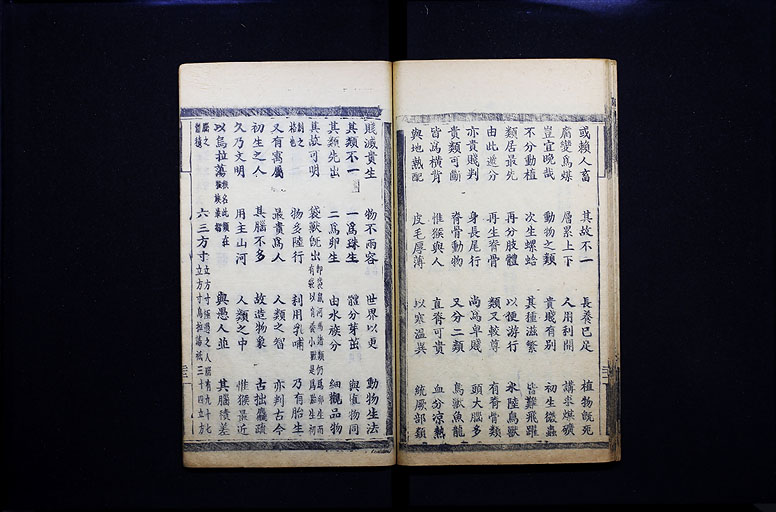 或賴人畜 其故不一 長養已足 植物旣死
腐變爲煤 層累上下 人用利開 講求煤礦
豈宜晩哉 動物之類 貴賤有別 初生微蟲
不分動植 次生螺蛤 其種滋繁 皆難飛躍
類居最先 再分肢體 以便游行 水陸鳥獸
由此遞分 再生脊骨 類又較尊 有脊骨類
亦貴賤判 身長尾行 尚爲卑賤 頭大腦多
貴類可斷 脊骨動物 又分二類 鳥獸魚龍
皆爲橫脊 惟猴與人 直脊可貴 血分凉熱
與地熱配 皮毛厚薄 以寒溫異 統厥部類
賤滅貴生 物不兩容 世界以更 動物生法
其類不一 一爲珠生 體分芽茁 與植物同
其類先出 二爲卵生 由水族分 細觀品物
其故可明 袋獸旣出
物多陸行 利用乳哺 乃有胎生
又有寓屬 最貴爲人 人類之智 亦判古今
初生之人 其腦不多 故造物象 古拙麤疏
久乃文明 用主山河 人類之中 惟猴最近
以烏拉蕩 六三方寸 與愚人並 其腦積差